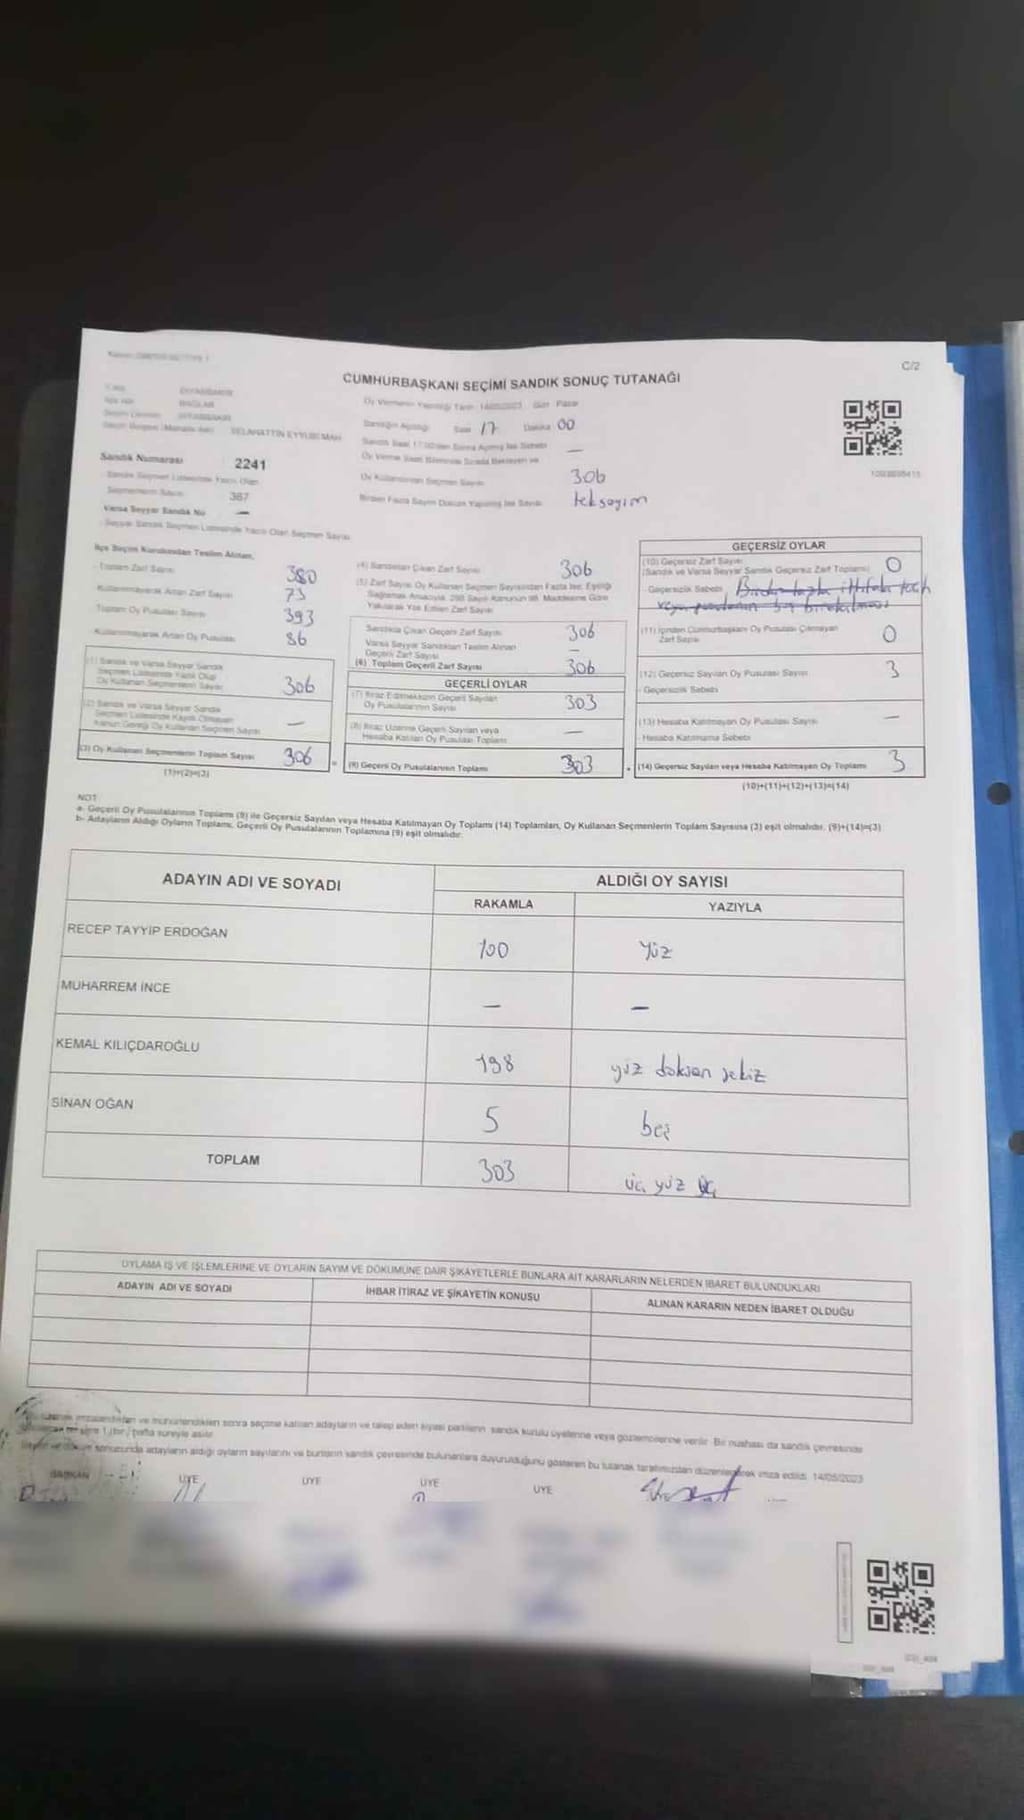 C/2
CUMHURBAŞKANI SEÇİMİ SANDIK SONUÇ TUTANAĞI
Oy Vermenin Yapıldığı Tarih: 14/05/2023 Gün: Pazar
Sandığın Açıldığı Saat 17 Dakika 00
SELAHATTİN EYYUBİ MAH
Sandık Numarası 2241
Oy Kullanan Seçmen Sayısı 306
Sandık Seçmen Listesinde Yazılı Olan
Seçmenlerin Sayısı 367
Birden Fazla Sayım Döküm Yapılmış İse Sayısı tek sayım
Varsa Seyyar Sandık No —
Seyyar Sandık Seçmen Listesinde Yazılı Olan Seçmen Sayısı
İlçe Seçim Kurulundan Teslim Alınan,
Toplam Zarf Sayısı 380
Kullanılmayarak Artan Zarf Sayısı 73
Toplam Oy Pusulası Sayısı 393
Kullanılmayarak Artan Oy Pusulası 86
(1) Sandık ve Varsa Seyyar Sandık
Seçmen Listesinde Yazılı Olup
Oy Kullanan Seçmenlerin Sayısı 306
(2) Sandık ve Varsa Seyyar Sandık
Seçmen Listesinde Kayıtlı Olmayan
Kanun Gereği Oy Kullanan Seçmen Sayısı —
(3) Oy Kullanan Seçmenlerin Toplam Sayısı 306
(1)+(2)=(3)
(4) Sandıktan Çıkan Zarf Sayısı 306
(5) Zarf Sayısı Oy Kullanan Seçmen Sayısından Fazla İse, Eşitliği
Sağlamak Amacıyla, 298 Sayılı Kanunun 98. Maddesine Göre
Yakılarak Yok Edilen Zarf Sayısı
Sandıkta Çıkan Geçerli Zarf Sayısı 306
Varsa Seyyar Sandıktan Teslim Alınan
Geçerli Zarf Sayısı —
(6) Toplam Geçerli Zarf Sayısı 306
GEÇERLİ OYLAR
(7) İtiraz Edilmeksizin Geçerli Sayılan
Oy Pusulalarının Sayısı 303
(8) İtiraz Üzerine Geçerli Sayılan veya
Hesaba Katılan Oy Pusulası Toplamı —
(9) Geçerli Oy Pusulalarının Toplamı 303
GEÇERSİZ OYLAR
(10) Geçersiz Zarf Sayısı
(Sandık ve Varsa Seyyar Sandık Geçersiz Zarf Toplamı) 0
Geçersizlik Sebebi
(11) İçinden Cumhurbaşkanı Oy Pusulası Çıkmayan
Zarf Sayısı 0
(12) Geçersiz Sayılan Oy Pusulası Sayısı 3
Geçersizlik Sebebi
(13) Hesaba Katılmayan Oy Pusulası Sayısı —
Hesaba Katılmama Sebebi
(14) Geçersiz Sayılan veya Hesaba Katılmayan Oy Toplamı 3
(10)+(11)+(12)+(13)=(14)
NOT:
a- Geçerli Oy Pusulalarının Toplamı (9) ile Geçersiz Sayılan veya Hesaba Katılmayan Oy Toplamı (14) Toplamları, Oy Kullanan Seçmenlerin Toplam Sayısına (3) eşit olmalıdır. (9)+(14)=(3)
b- Adayların Aldığı Oyların Toplamı, Geçerli Oy Pusulalarının Toplamına (9) eşit olmalıdır.
ADAYIN ADI VE SOYADI ALDIĞI OY SAYISI
RAKAMLA YAZIYLA
RECEP TAYYİP ERDOĞAN 100 Yüz
MUHARREM İNCE — —
KEMAL KILIÇDAROĞLU 198 yüz doksan sekiz
SİNAN OĞAN 5 beş
TOPLAM 303 üç yüz üç
OYLAMA İŞ VE İŞLEMLERİNE VE OYLARIN SAYIM VE DÖKÜMÜNE DAİR ŞİKAYETLERLE BUNLARA AİT KARARLARIN NELERDEN İBARET BULUNDUKLARI
ADAYIN ADI VE SOYADI İHBAR İTİRAZ VE ŞİKAYETİN KONUSU ALINAN KARARIN NEDEN İBARET OLDUĞU
imzalandıktan ve mühürlendikten sonra seçime katılan adayların ve talep eden siyasi partilerin sandık kurulu üyelerine veya gözlemcilerine verilir. Bir nüshası da sandık çevresinde
hafta süreyle asılır.
sonucunda adayların aldığı oyların sayılarını ve bunların sandık çevresinde bulunanlara duyurulduğunu gösteren bu tutanak tarafımızdan düzenlenerek imza edildi. 14/05/2023
BAŞKAN ÜYE ÜYE ÜYE ÜYE